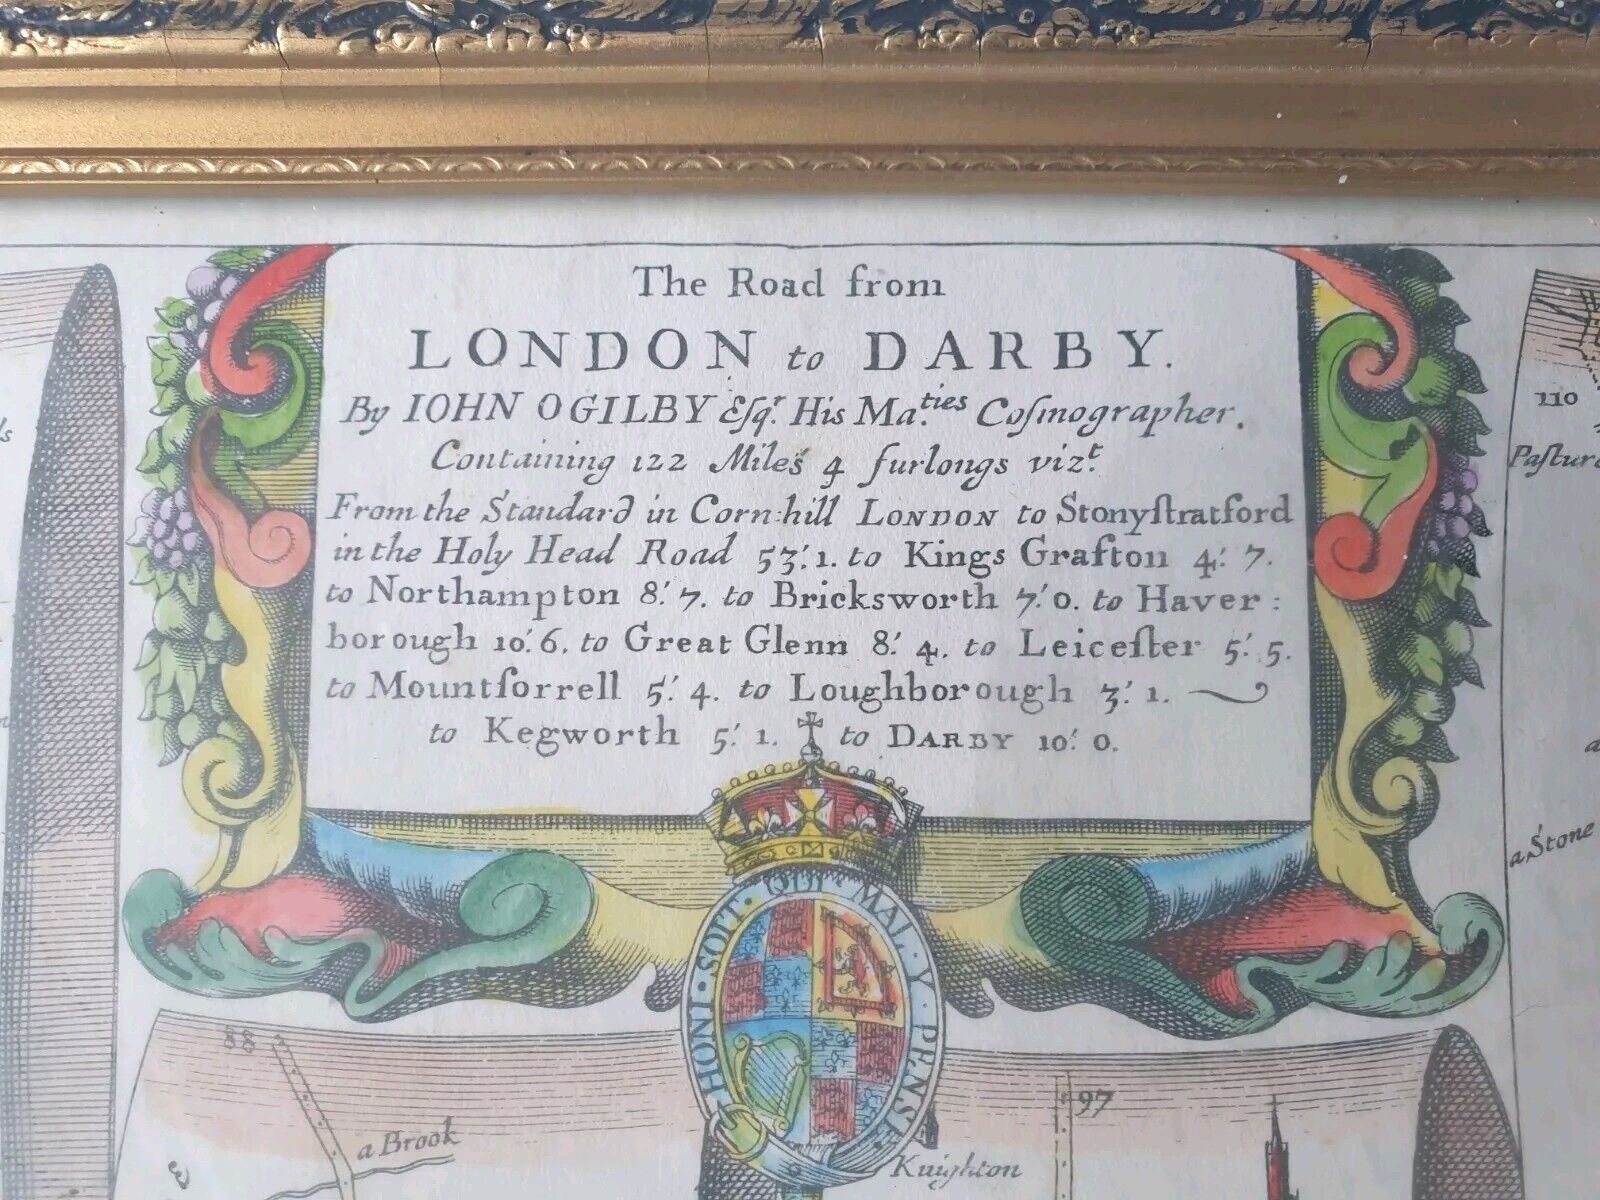 The Road from
LONDON to DARBY.
By IOHN OGILBY Esqr. His Ma.ties Coſmographer.
Containing 122 Miles 4 furlongs vizt.
From the Standard in Corn:hill LONDON to Stonyſtratford
in the Holy Head Road 53'.1. to Kings Grafton 4'.7.
to Northampton 8'.7. to Bricksworth 7'.0. to Haver:
borough 10'.6. to Great Glenn 8'.4. to Leiceſter 5'.5.
to Mountſorrell 5'.4. to Loughborough 3'.1.
to Kegworth 5'.1. to DARBY 10'.0.
HONI·SOIT·QUI·MAL·Y·PENSE
110
Paſture
a Stone
88
a Brook
97
Knighton